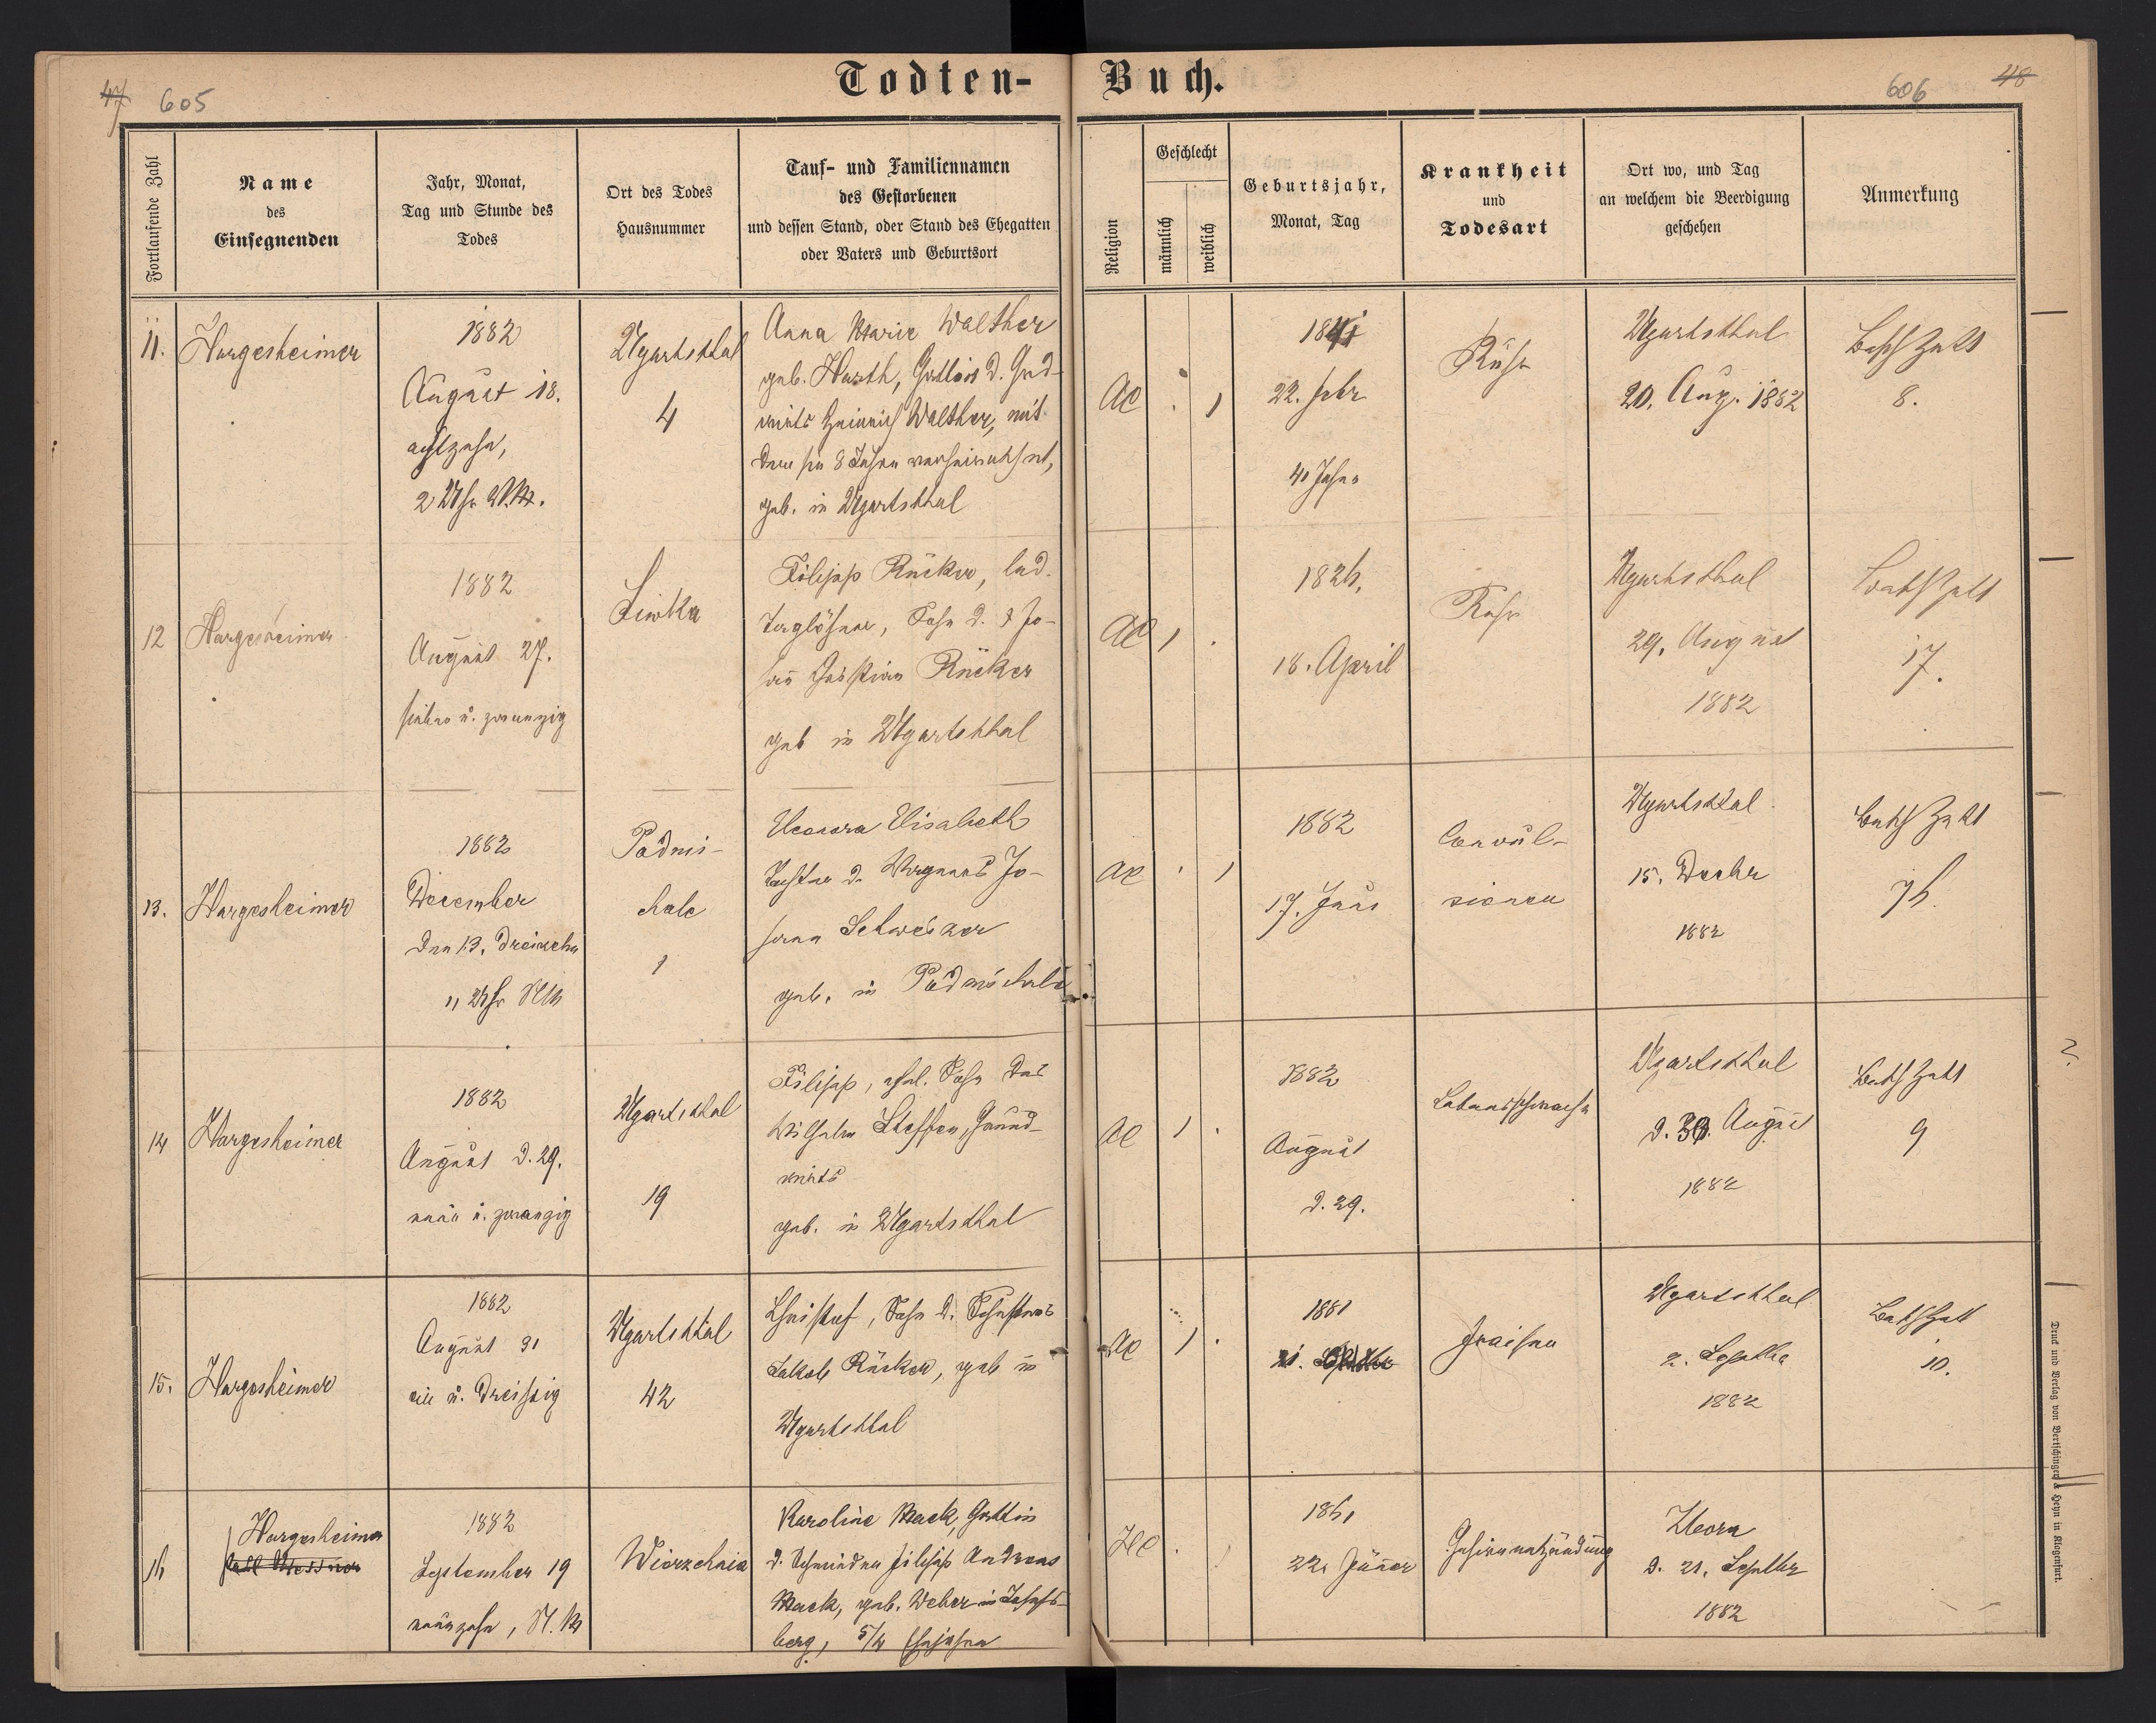 Todten- Buch.
47 605
606 48
Fortlaufende Zahl
Name
des
Einsegnenden
Jahr, Monat,
Tag und Stunde des
Todes
Ort des Todes
Hausnummer
Tauf- und Familiennamen
des Gestorbenen
und dessen Stand, oder Stand des Ehegatten
oder Vaters und Geburtsort
Religion
Geschlecht
männlich
weiblich
Geburtsjahr,
Monat, Tag
Krankheit
und
Todesart
Ort wo, und Tag
an welchem die Beerdigung
geschehen
Anmerkung
11.
Hargesheimer
1882
August 18.
achtzehn,
2 Uhr
Ugartsthal
4
Anna Marie Walther
geb. Harth, Gattin d. Grd-
wirts Heinrich Walther, mit
dem sie 8 Jahre verheirathet,
geb. in Ugartsthal
AC
1
1841
22. Febr
41 Jahre
Ruhr
Ugartsthal
20. Aug. 1882
8.
12
Hargesheimer
1882
August 27.
sieben u. zwanzig
Liwka
Filipp Rücker, led.
Taglöhner, Sohn d. Jo-
hañ Christian Rücker
geb in Ugartsthal
AC
1
18. April
Ruhr
Ugartsthal
29. August
1882
17.
13.
Hargesheimer
1882
December
den 13. dreizehn
11 Uhr
Podmi-
chale
1
Eleonora Elisabeth
Tochter d. Wagners Jo-
hann Schweizer
geb. in Podmichale
AC
1
1882
17. Juni
Convul-
sionen
Ugartsthal
15. Decbr
1882
14
Hargesheimer
1882
August d. 29.
neun u. zwanzig
Ugartsthal
19
Filipp, ehel. Sohn des
Wilhelm Steffen, Grund-
wirts
geb. in Ugartsthal
AC
1
1882
August
d. 29.
Lebensschwäche
Ugartsthal
d. 30. August
1882
9
15.
Hargesheimer
1882
August 31
ein u. dreissig
Ugartsthal
42
Christof, Sohn d. Schusters
Jakob Rücker, geb in
Ugartsthal
AC
1
1881
Fraisen
Ugartsthal
2. Septbr
1882
10.
16
Hargesheimer
1882
September 19
neunzehn,
Wierzchnia
Karoline Mack, Gattin
d. Schmiedes Filipp Andreas
Mack, geb. Weber in Josefs-
berg, 5/4 Ehejahre
HC
1
22. Jäner
Gehirnentzündung
d. 21. Septbr
1882
Druck und Verlag von Bertschinger & Heyn in Klagenfurt.